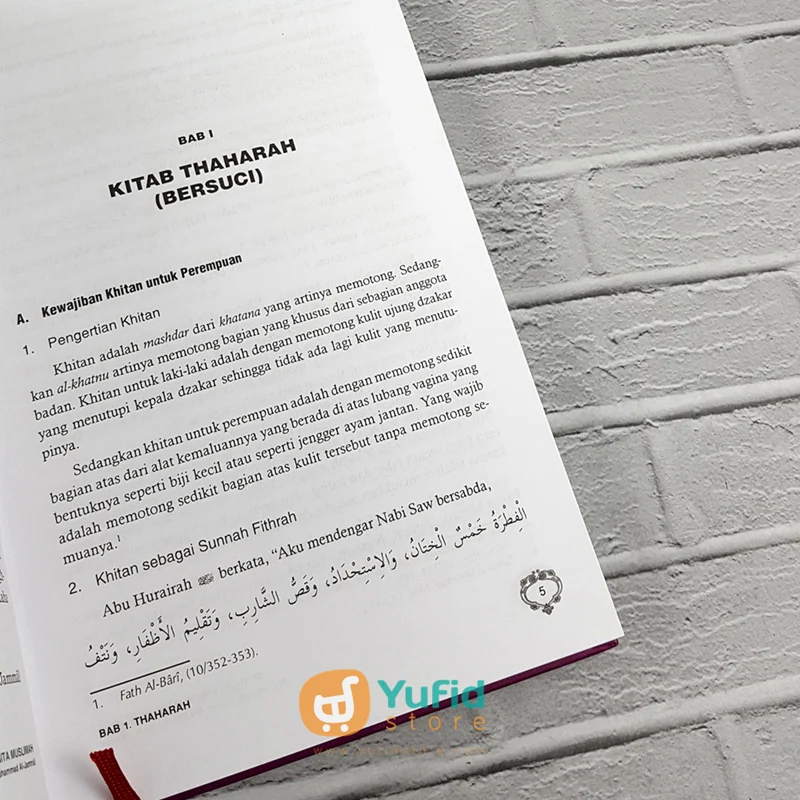 BAB I
KITAB THAHARAH
(BERSUCI)
A. Kewajiban Khitan untuk Perempuan
1. Pengertian Khitan
Khitan adalah mashdar dari khatana yang artinya memotong. Sedang-
kan al-khatnu artinya memotong bagian yang khusus dari sebagian anggota
badan. Khitan untuk laki-laki adalah dengan memotong kulit ujung dzakar
yang menutupi kepala dzakar sehingga tidak ada lagi kulit yang menutu-
pinya.
Sedangkan khitan untuk perempuan adalah dengan memotong sedikit
bagian atas dari alat kemaluannya yang berada di atas lubang vagina yang
bentuknya seperti biji kecil atau seperti jengger ayam jantan. Yang wajib
adalah memotong sedikit bagian atas kulit tersebut tanpa memotong se-
muanya.¹
2. Khitan sebagai Sunnah Fithrah
Abu Hurairah berkata, “Aku mendengar Nabi Saw bersabda,
الْفِطْرَةُ خَمْسٌ الْخِتَانُ، وَالِاسْتِحْدَادُ، وَقَصُّ الشَّارِبِ، وَتَقْلِيمُ الْأَظْفَارِ، وَنَتْفُ
1. Fath Al-Bârî, (10/352-353).
BAB 1. THAHARAH
5
Yufid
store